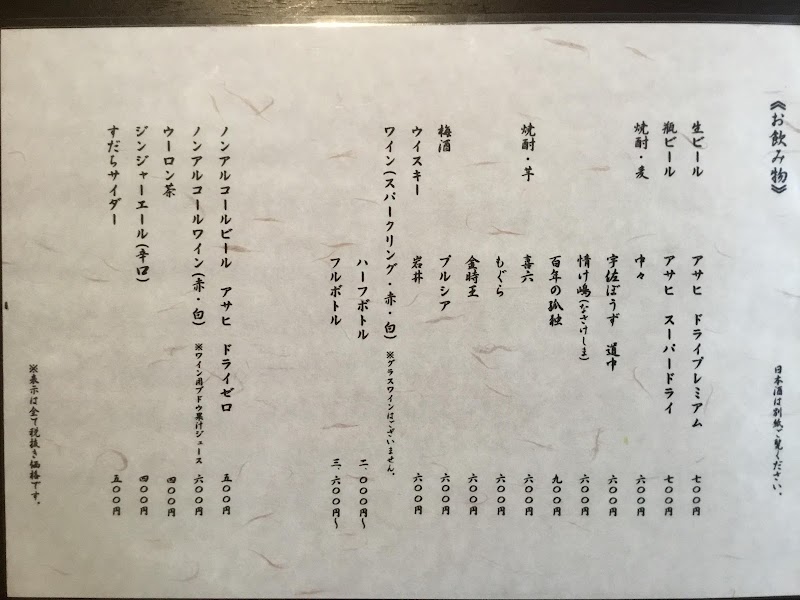 《お飲み物》
日本酒は別紙ご覧ください。
生ビール アサヒ ドライプレミアム 七〇〇円
瓶ビール アサヒ スーパードライ 七〇〇円
焼酎・麦 中々 六〇〇円
宇佐ぼうず 道中 六〇〇円
情け嶋(なさけしま) 六〇〇円
百年の孤独 九〇〇円
焼酎・芋 喜六 六〇〇円
もぐら 六〇〇円
金時王 六〇〇円
梅酒 プルシア 六〇〇円
ウイスキー 岩井 六〇〇円
ワイン(スパークリング・赤・白) ※グラスワインはございません。
ハーフボトル 二、〇〇〇円~
フルボトル 三、六〇〇円~
ノンアルコールビール アサヒ ドライゼロ 五〇〇円
ノンアルコールワイン(赤・白) ※ワイン用ブドウ果汁ジュース 六〇〇円
ウーロン茶 四〇〇円
ジンジャーエール(辛口) 四〇〇円
すだちサイダー 五〇〇円
※表示は全て税抜き価格です。